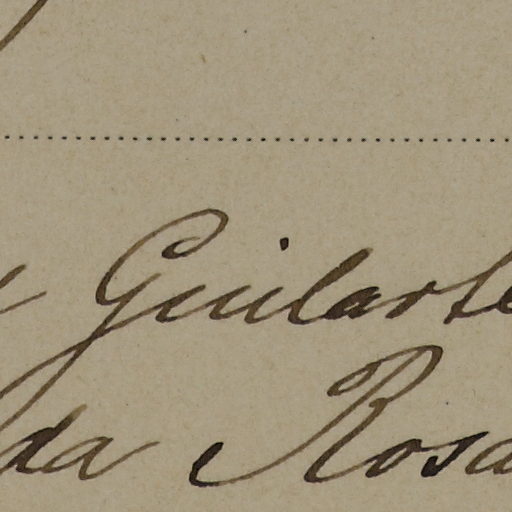 Guilarte
da Rosa